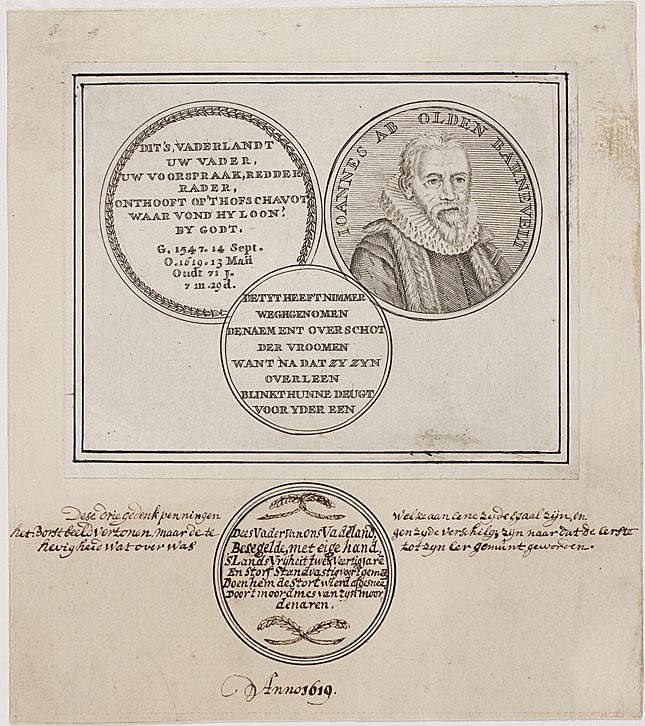 DIT'S, VADERLANDT
UW VADER,
UW VOORSPRAAK, REDDER
RADER,
ONTHOOFT OP'T HOFS CHAVOT
WAAR VOND HY LOON?
BY GODT.
G. 1547. 14 Sept.
O. 1619. 13 Maii
Oudt 71 J.
7 m. 29 d.
IOANNES AB OLDEN BARNEVELT
DE TYT HEEFT NIMMER
WEGHGENOMEN
DE NAEM ENT OVERSCHOT
DER VROOMEN
WANT NA DAT ZY ZYN
OVERLEEN
BLINKT HUNNE DEUGT
VOOR YDER EEN
Dese drie gedenkpenningen
het Borstbeeld vertonen, maar de te
hevigheid wat over was
Dees Vader van ons Vadeland,
Besegelde, met eige hand,
SLands Vrijheit twee Veertig jare
En Storf Standvastig voor't gemeen
Doen hem de Stort wierd afgesnee
Door t moordmes van zyn moor,
denaren.
Welke aan eene zyde Egaal zijn, en
gen zyde verschelig zijn naar dat de Eerste
tot zyn Eer gemunt geworden.
Anno 1619.